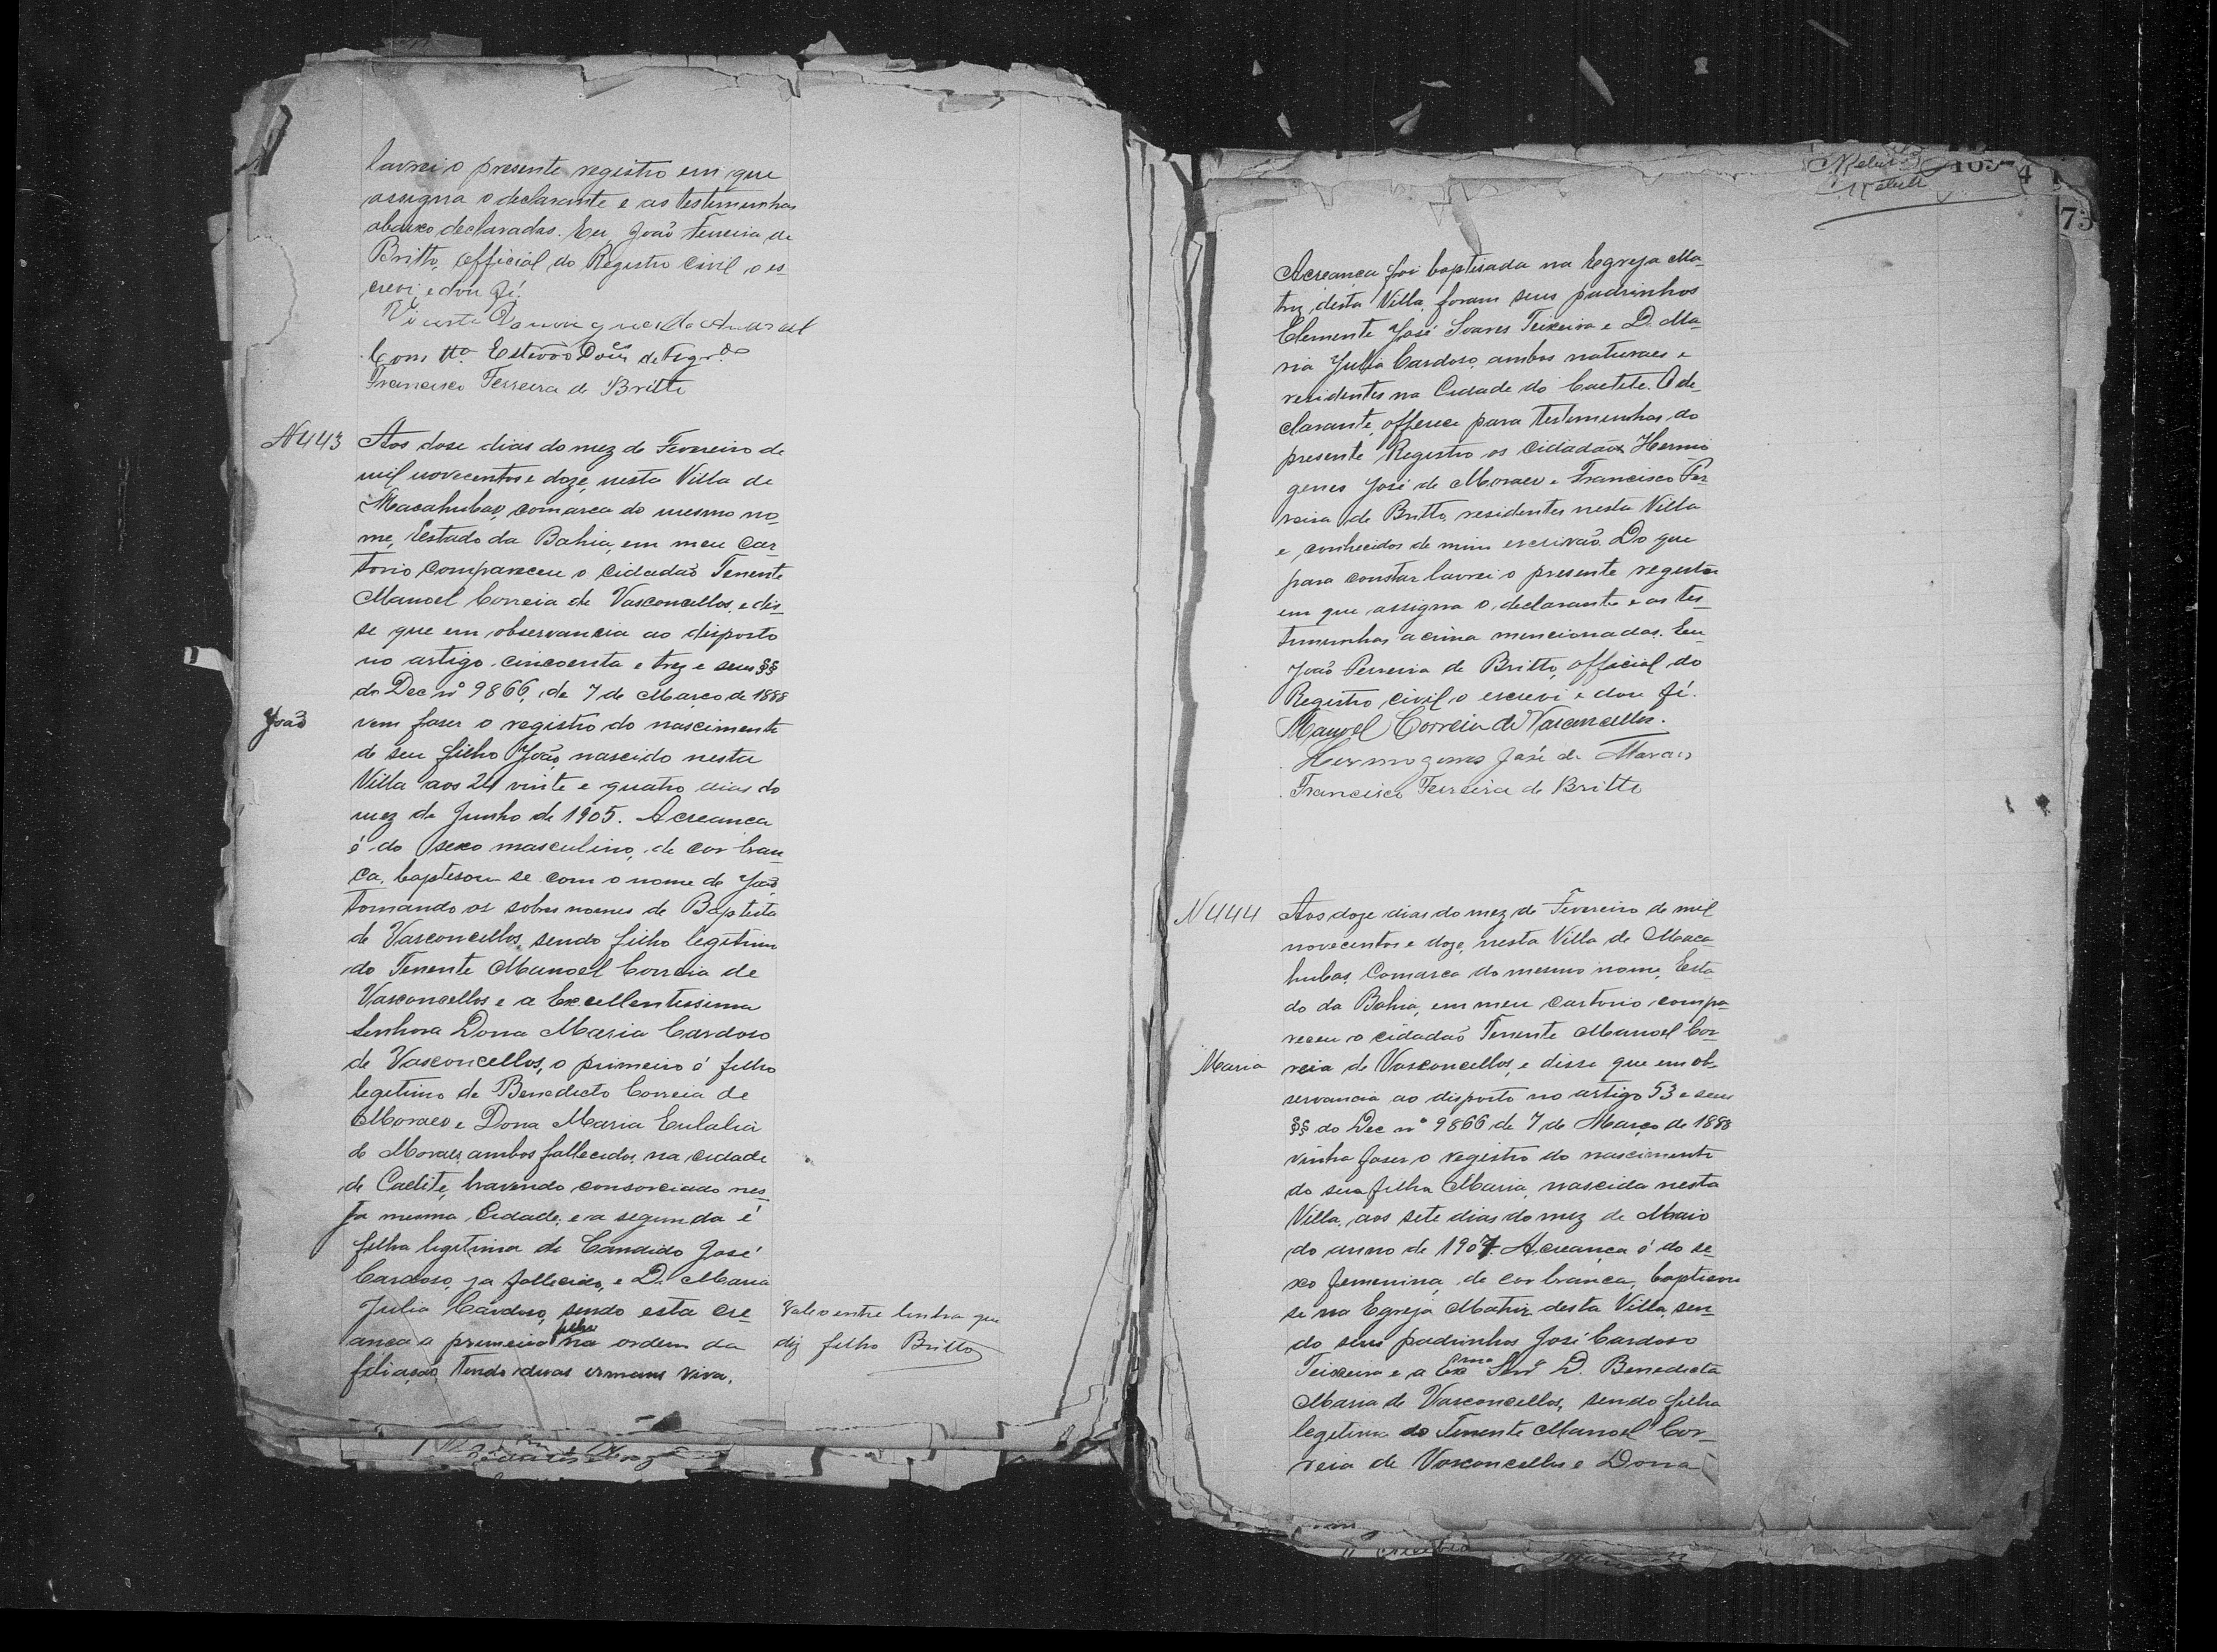 lavrei o presente registro em que
assigna o declarante e as testemunhas
abaixo declaradas. Eu, João Ferreira de
Britto, official do Registro Civil o es-
crevi, e dou fé.
Vicente Domingues do Amaral
Como tta. Estevão Does de Figrdo
Francisco Ferreira de Britto
N443 Aos dose dias do mez de Fevereiro de
mil novecentos e doze, nesta Villa de
Macahubas, comarca do mesmo no-
me, Estado da Bahia, em meu Car-
torio compareceu o Cidadão Tenente
Manoel Correia de Vasconcellos, e dis-
se que em observancia ao disposto
no artigo cincoenta e trez e seus §§
do Dec nº 9866, de 7 de Março de 1888
João vem faser o registro do nascimento
de seu filho João, nascido nesta
Villa aos 24 vinte e quatro dias do
mez de Junho de 1905. A creanca
é do sexo masculino, de cor bran-
ca, baptesou se com o nome de João
tomando os sobre nomes de Baptista
de Vasconcellos, sendo filho legitimo
do Tenente Manoel Correia de
Vasconcellos e a Excellentissima
Senhora Dona Maria Cardoso
de Vasconcellos, o primeiro é filho
legitimo de Benedicto Correia de
Moraes e Dona Maria Eulalia
de Moraes, ambos fallecidos na cidade
de Caetite, havendo consorciado nes-
ta mesma Cidade, e a segunda é
filha legitima de Candido José
Cardoso, ja fallecido, e D. Maria
Julia Cardoso, sendo esta cre-
anca a primeiro filho na ordem da
filiação, tendo duas ermans viva.
Vale o entre linha que
diz filho Britto
103 4
73
A creança foi baptisada na Egreja Ma-
triz desta Villa, foram seus padrinhos
Clemente José Soares Teixeira e D. Ma-
ria Julia Cardoso, ambos naturaes e
residentes na Cidade do Caetete. O de-
clarante, offerece para testemunhas do
presente Registro os Cidadãos Hermo
genes José de Moraes e Francisco Fer-
reira de Britto, residentes nesta Villa
e conhecidos de mim escrivão. Do que
para constar lavrei o presente registro
em que assigna o declarante e as tes-
temunhas acima mencionadas. Eu
João Ferreira de Britto, official do
Registro civil, o escrevi e dou fé.
Manoel Correia de Vasconcellos.
Hermogenes José de Moraes
Francisco Ferreira de Britto
N444 Aos doze dias do mez de Fevereiro de mil
novecentos e doze, nesta Villa de Maca-
hubas, Comarca do mesmo nome, Esta-
do da Bahia, em meu cartorio compa-
receu o cidadão Tenente Manoel Cor-
Maria reia de Vasconcellos, e disse que em ob-
servancia ao disposto no artigo 53 e seus
§§ do Dec nº 9866 de 7 de Março de 1888
vinha faser o registro do nascimento
de sua filha Maria, nascida nesta
Villa, aos sete dias do mez de Maio
do anno de 1907. A creança é do se-
xo femenina, de cor branca, baptisou
se na Egreja Matriz desta Villa, sen-
do seus padrinhos José Cardoso
Teixeira e a Exma Senrª D. Benedicta
Maria de Vasconcellos, sendo filha
legitima do Tenente Manoel Cor-
reia de Vasconcellos e Dona